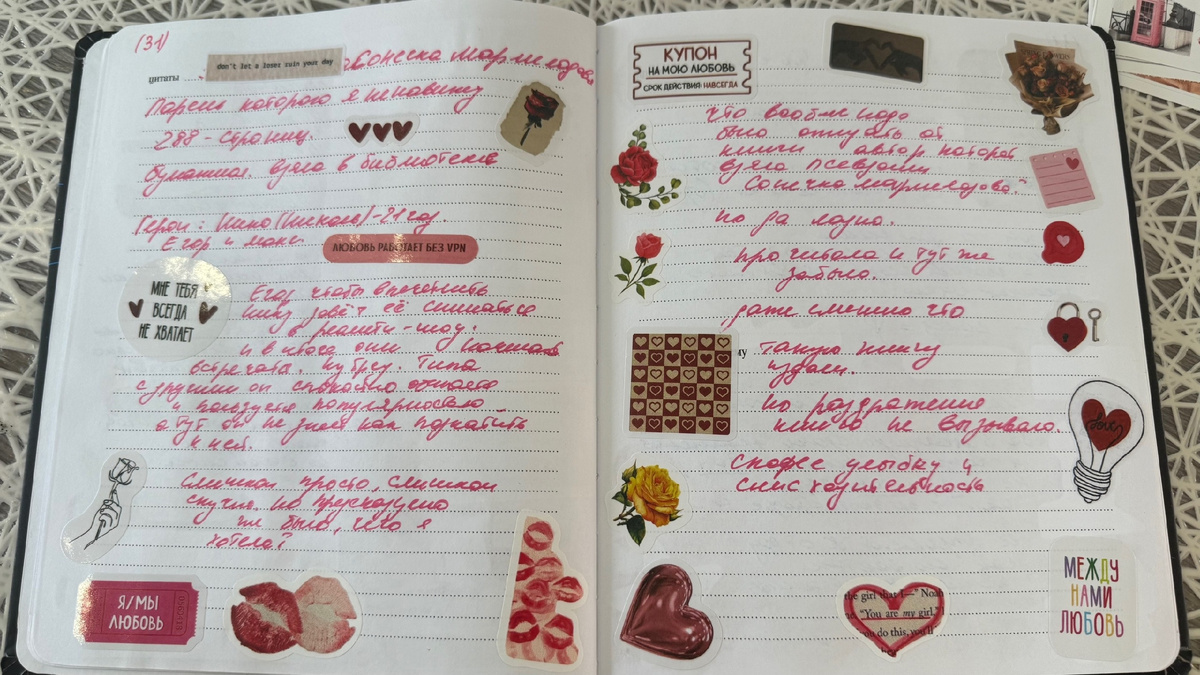 (31)
цитаты
don't let a loser ruin your day
Сонечка Мармеладова
Парень которого я ненавижу
288 - страниц.
Бумажная. взяла в библиотеке
Герои: Нина (Николь) - 21 год.
Егор и Макс
ЛЮБОВЬ РАБОТАЕТ БЕЗ VPN
МНЕ ТЕБЯ
ВСЕГДА
НЕ ХВАТАЕТ
Егор чтобы впечатлить
Нину зовёт её сниматься
в реалити-шоу.
и в итоге они
встреча. Типа
с другими он спокойно
и пользуется популярностью
а тут он не знает как подкатить
к ней.
Слишком просто, слишком
скучно. но предсказуемо
же было, чего я
хотела?
Я/МЫ
ЛЮБОВЬ
КУПОН
НА МОЮ ЛЮБОВЬ
СРОК ДЕЙСТВИЯ: НАВСЕГДА
Что вообще надо
было ожидать от
книги автор которой
взяла псевдоним
"Сонечка Мармеладова"
но да ладно.
прочитала и тут же
забыла.
даже смешно что
му такую книгу
издали.
но раздражения
книга не вызывала.
Скорее улыбку и
снисходительность
Love
the girl that I—' Noah
"You are my girl,"
do this, you'll
МЕЖДУ
НАМИ
ЛЮБОВЬ